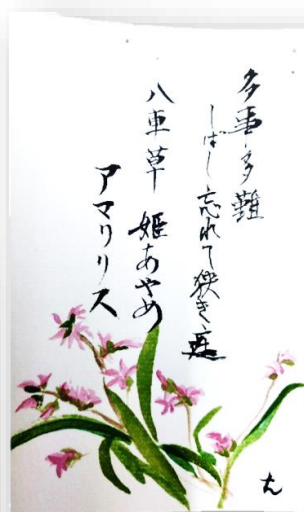 多事多難
しばし忘れて狭き庭
八車草 姫あやめ
アマリリス